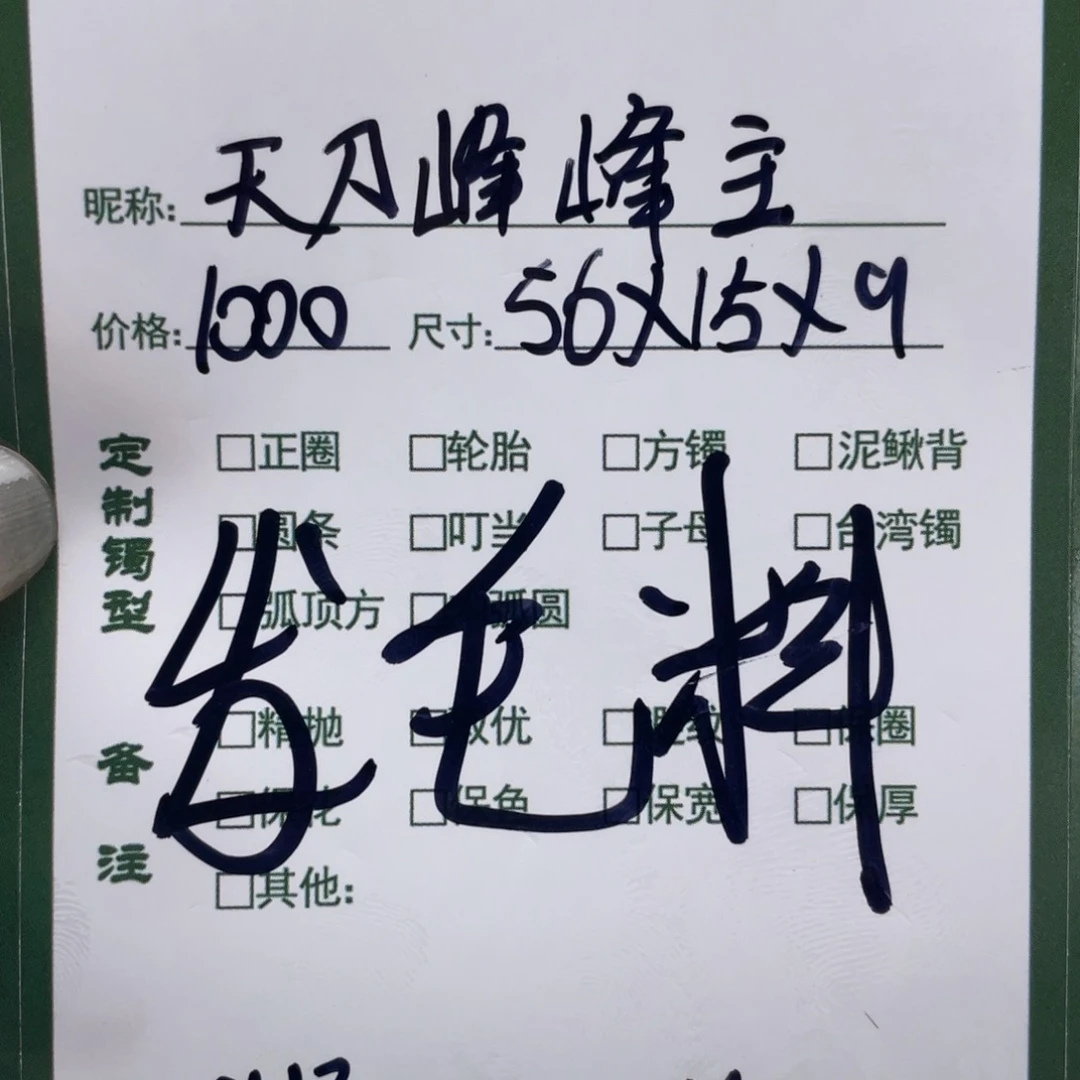 昵称: 天刀峰峰主
价格: 1000 尺寸: 56X15X9
定制镯型
□正圈 □轮胎 □方镯 □泥鳅背
□圆条 □叮当 □子母 □台湾镯
□弧顶方 弧圆
发毛料
备注
□精抛 □ □ □
□ □保色 □保宽 □保厚
□其他: